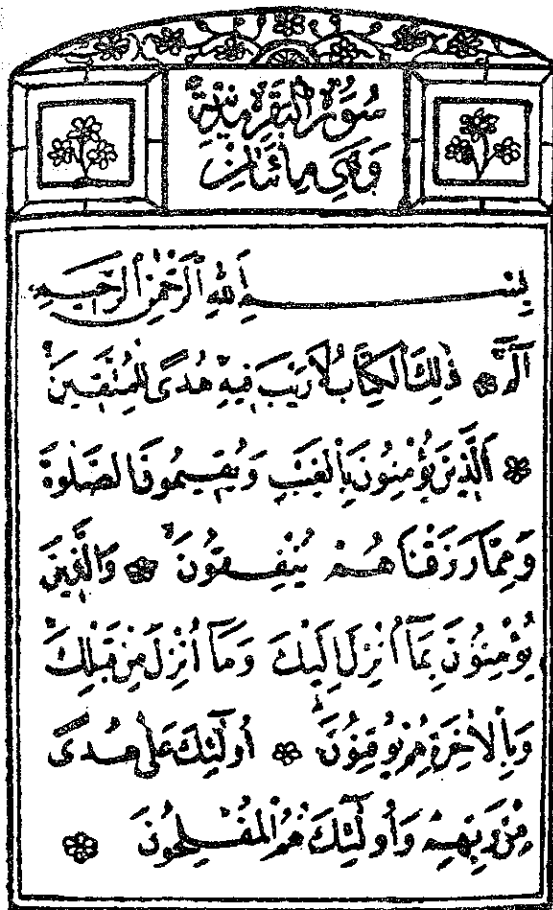 سُورَةُ الْبَقَرَةِ مَدَنِيَّةٌ
وَهِيَ مِائَتَانِ
بِسْمِ اللهِ الرَّحْمٰنِ الرَّحِيمِ
الٓمٓ ۞ ذٰلِكَ الْكِتَابُ لَا رَيْبَ فِيهِ هُدًى لِلْمُتَّقِينَ
۞ الَّذِينَ يُؤْمِنُونَ بِالْغَيْبِ وَيُقِيمُونَ الصَّلٰوةَ
وَمِمَّا رَزَقْنَاهُمْ يُنْفِقُونَ ۞ وَالَّذِينَ
يُؤْمِنُونَ بِمَا أُنْزِلَ إِلَيْكَ وَمَا أُنْزِلَ مِنْ قَبْلِكَ
وَبِالْاٰخِرَةِ هُمْ يُوقِنُونَ ۞ أُولٰٓئِكَ عَلٰى هُدًى
مِنْ رَبِّهِمْ وَأُولٰٓئِكَ هُمُ الْمُفْلِحُونَ ۞